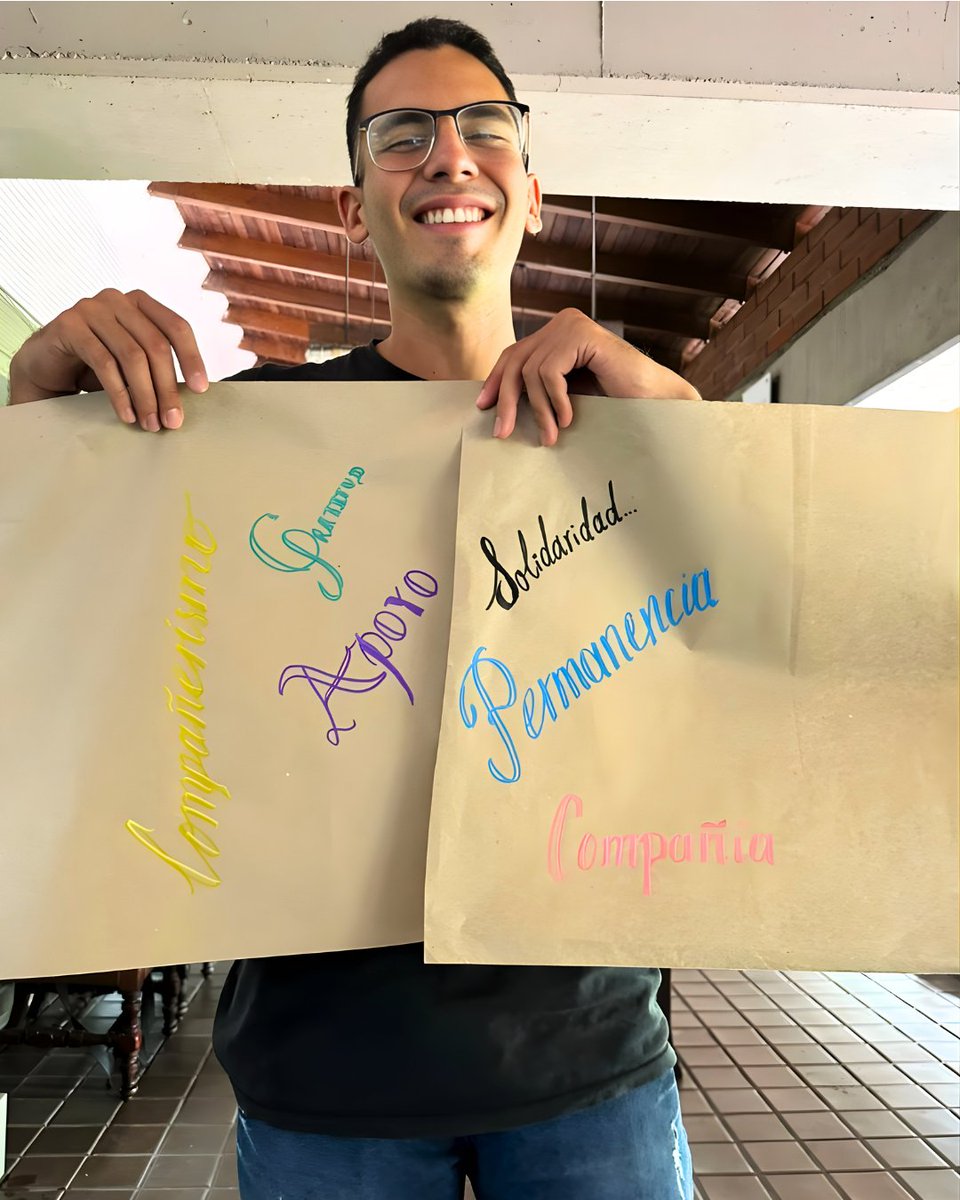 Compañerismo
Gratitud
Apoyo
Solidaridad...
Permanencia
Compañia